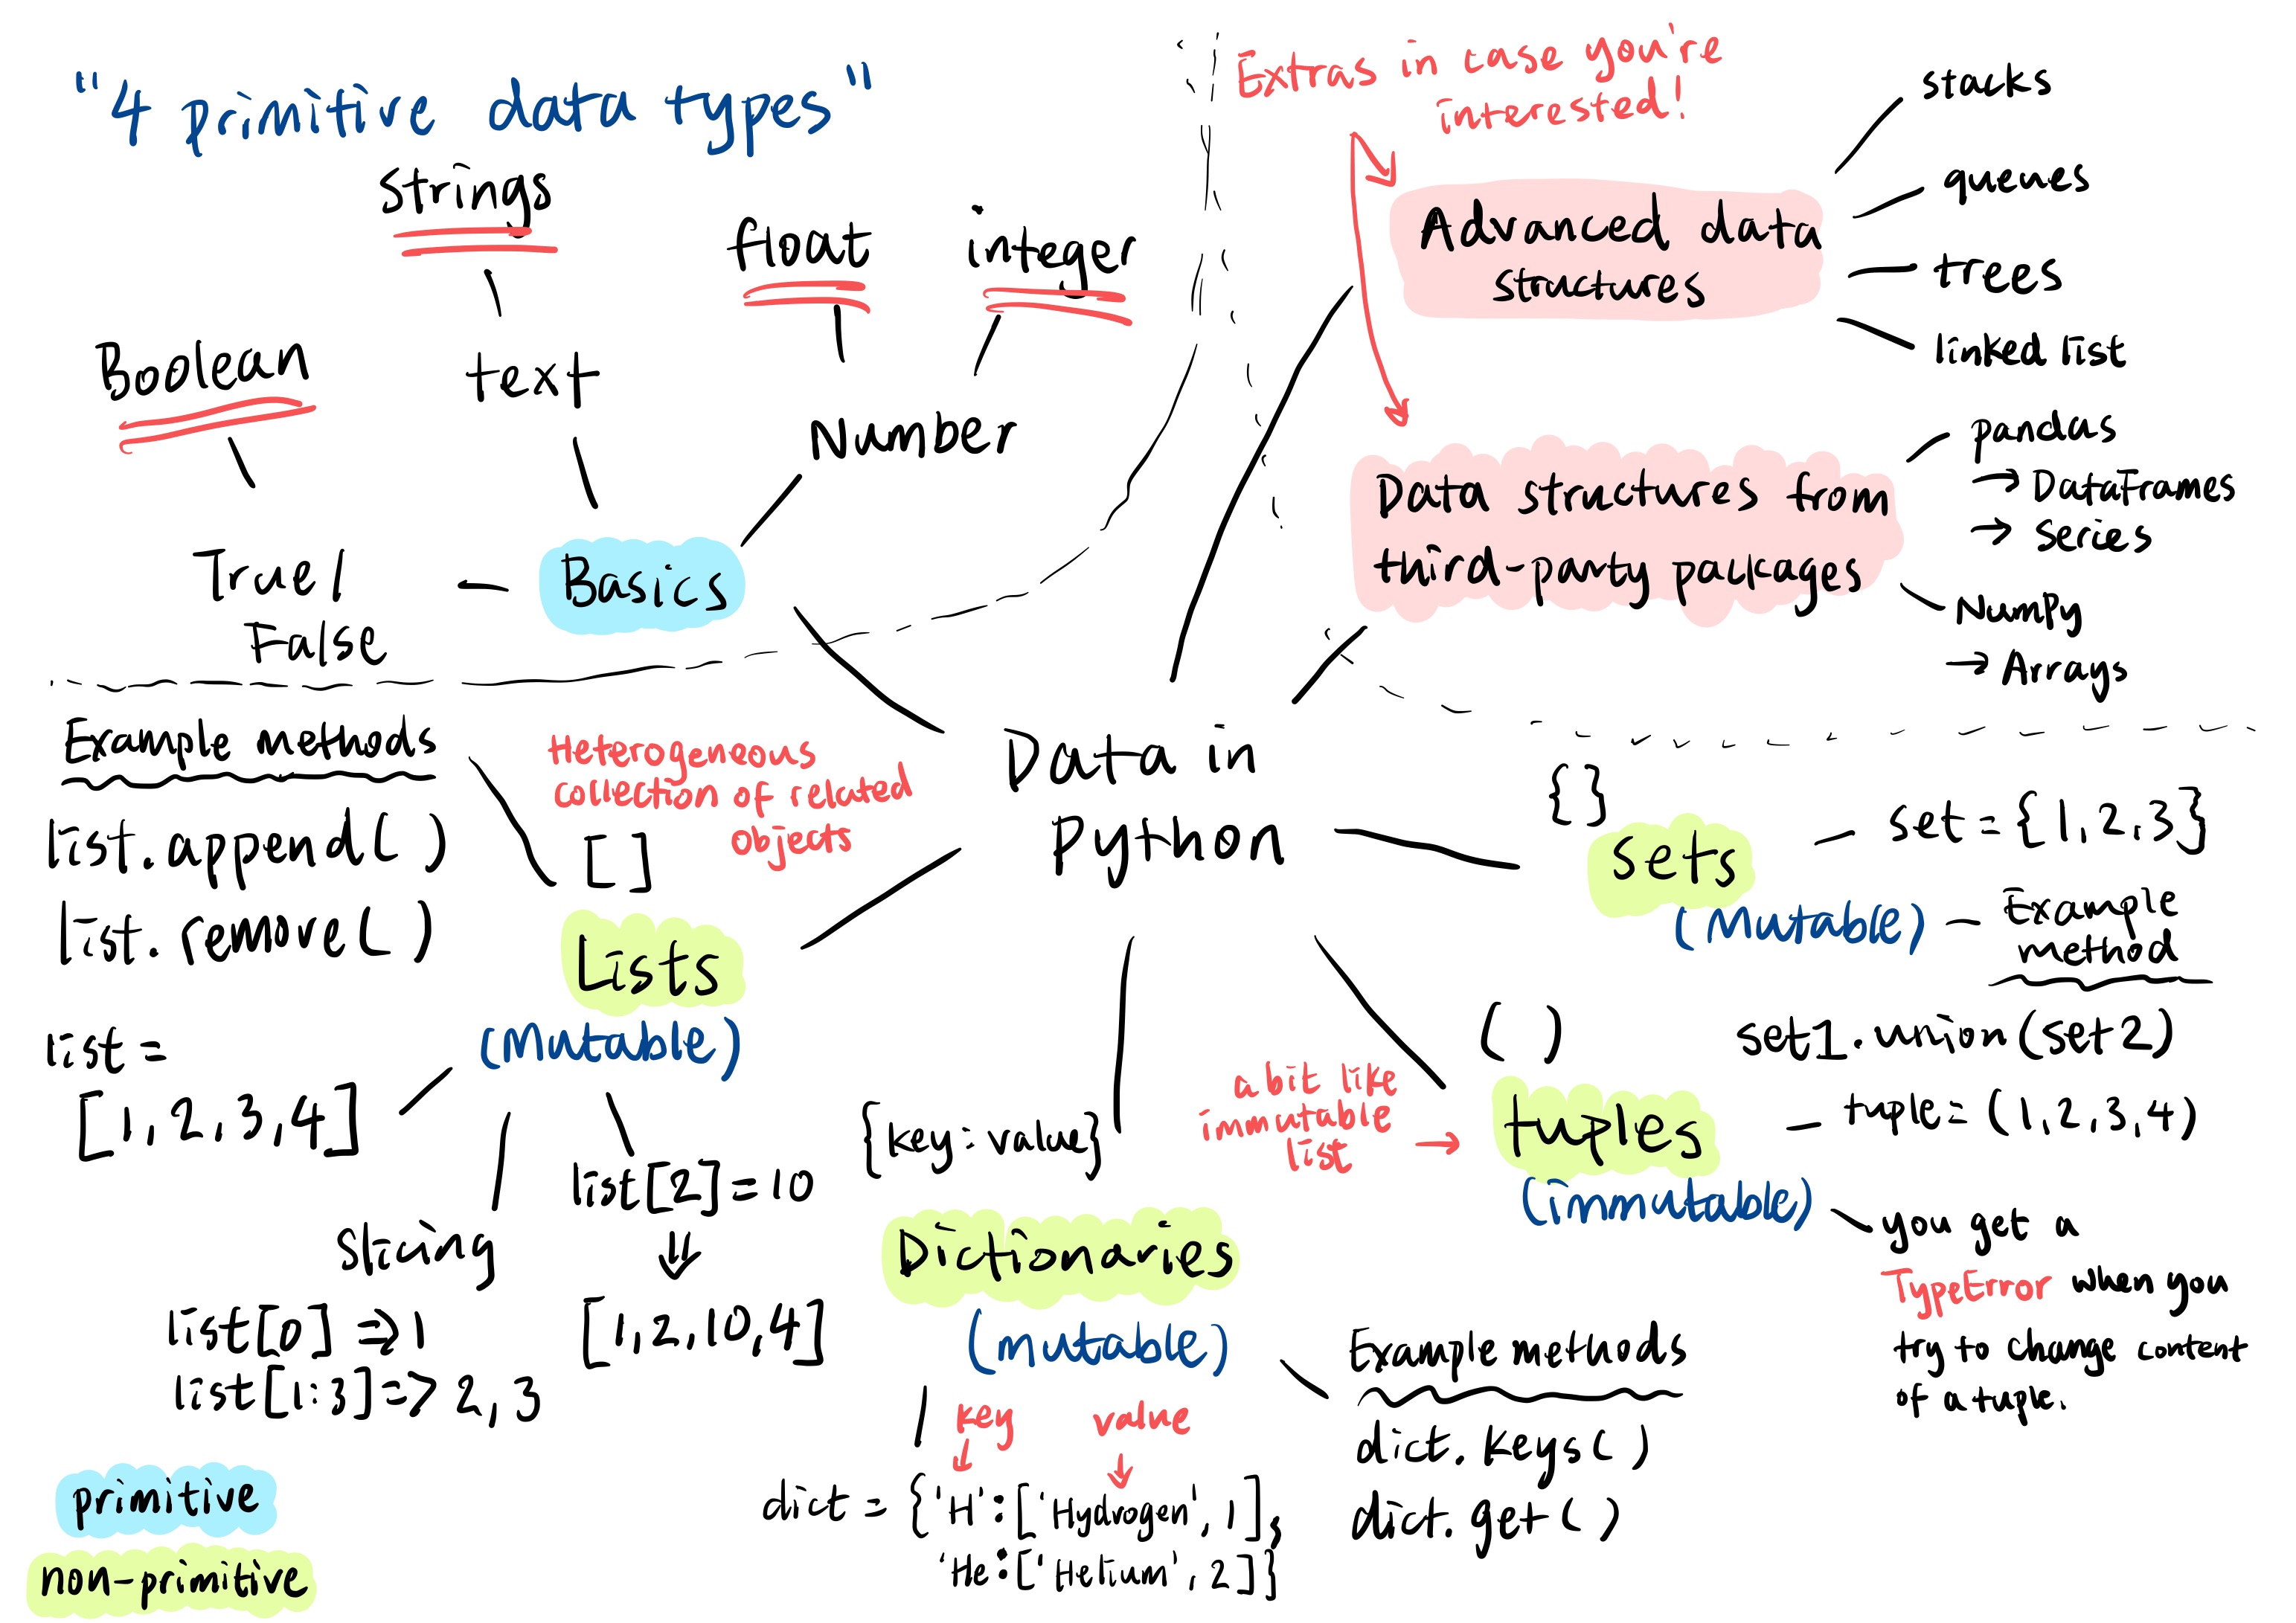 "4 primitive data types"
strings
float
integer
Boolean
text
Number
True/
False
Basics
Extras in case you're
interested!
Advanced data
structures
stacks
queues
trees
linked list
Data structures from
third-party packages
pandas
→ DataFrames
→ Series
NumPy
→ Arrays
Data in
Python
Example methods
list.append( )
list.remove( )
Heterogeneous
collection of related
objects
[ ]
Lists
(Mutable)
list =
[1, 2, 3, 4]
Slicing
list[0] => 1
list[1:3] => 2, 3
list[2] = 10
⇓
[1, 2, 10, 4]
{key: value}
Dictionaries
(mutable)
key
value
dict = {'H': ['Hydrogen', 1],
'He: ['Helium', 2]}
Example methods
dict. keys( )
dict. get( )
{}
sets
(Mutable)
set = {1, 2, 3}
Example
method
set1.union(set2)
( )
a bit like
immutable
list →
tuples
(immutable)
tuple = (1, 2, 3, 4)
you get a
TypeError when you
try to change content
of a tuple.
primitive
non-primitive